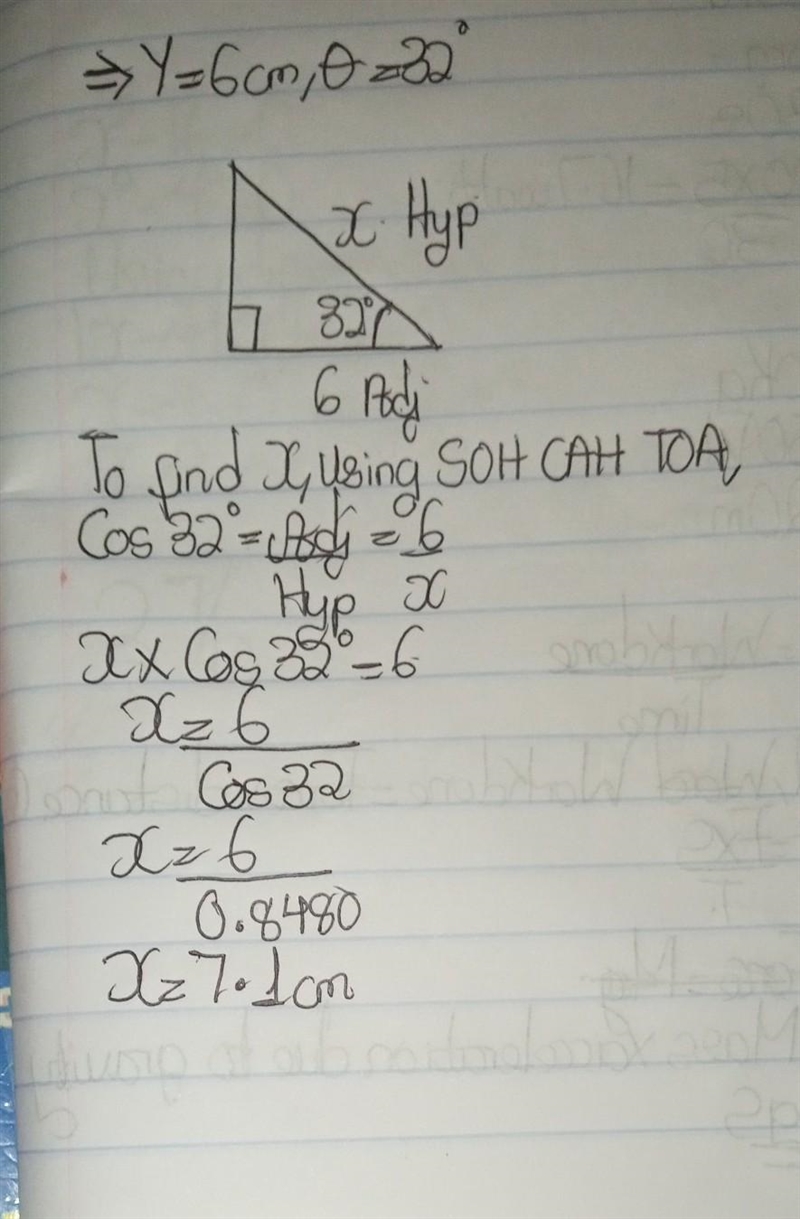 ⇒ Y=6cm, θ=32°
x Hyp
32°
6 Adj
To find x, using SOH CAH TOA,
Cos 32° = Adj = 6
Hyp x
x × Cos 32° = 6
x = 6
Cos 32
x = 6
0.8480
x = 7.1cm